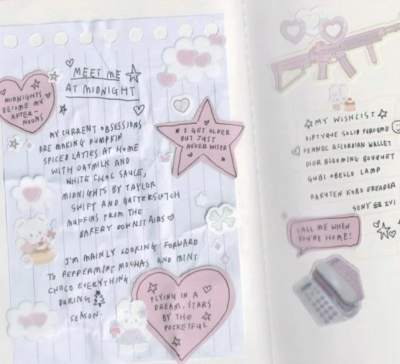 MEET ME
AT MIDNIGHT
MIDNIGHTS
BECOME MY
AFTER-
NOONS
MY CURRENT OBSESSIONS
ARE MAKING PUMPKIN
SPICED LATTES AT HOME
WITH OATMILK AND
WHITE CHOC SAUCE,
MIDNIGHTS BY TAYLOR
SWIFT AND BUTTERSCOTCH
MUFFINS FROM THE
BAKERY DOWNSTAIRS
# I GET OLDER
BUT JUST
NEVER WISER
I'M MAINLY LOOKING FORWARD
TO PEPPERMINT MOCHAS AND MINT
CHOCO EVERYTHING
DURING
SEASON.
FLYING IN A
DREAM, STARS
BY THE
POCKETFUL
MY WISHLIST
DIPTYQUE SOLID PERFUME
CHANNEL ACCORDIAN WALLET
DIOR BLOOMING BOUQUET
GUBI OBELLO LAMP
RAKUTEN KOBO EREADER
SONY
CALL ME WHEN
YOU'RE HOME!